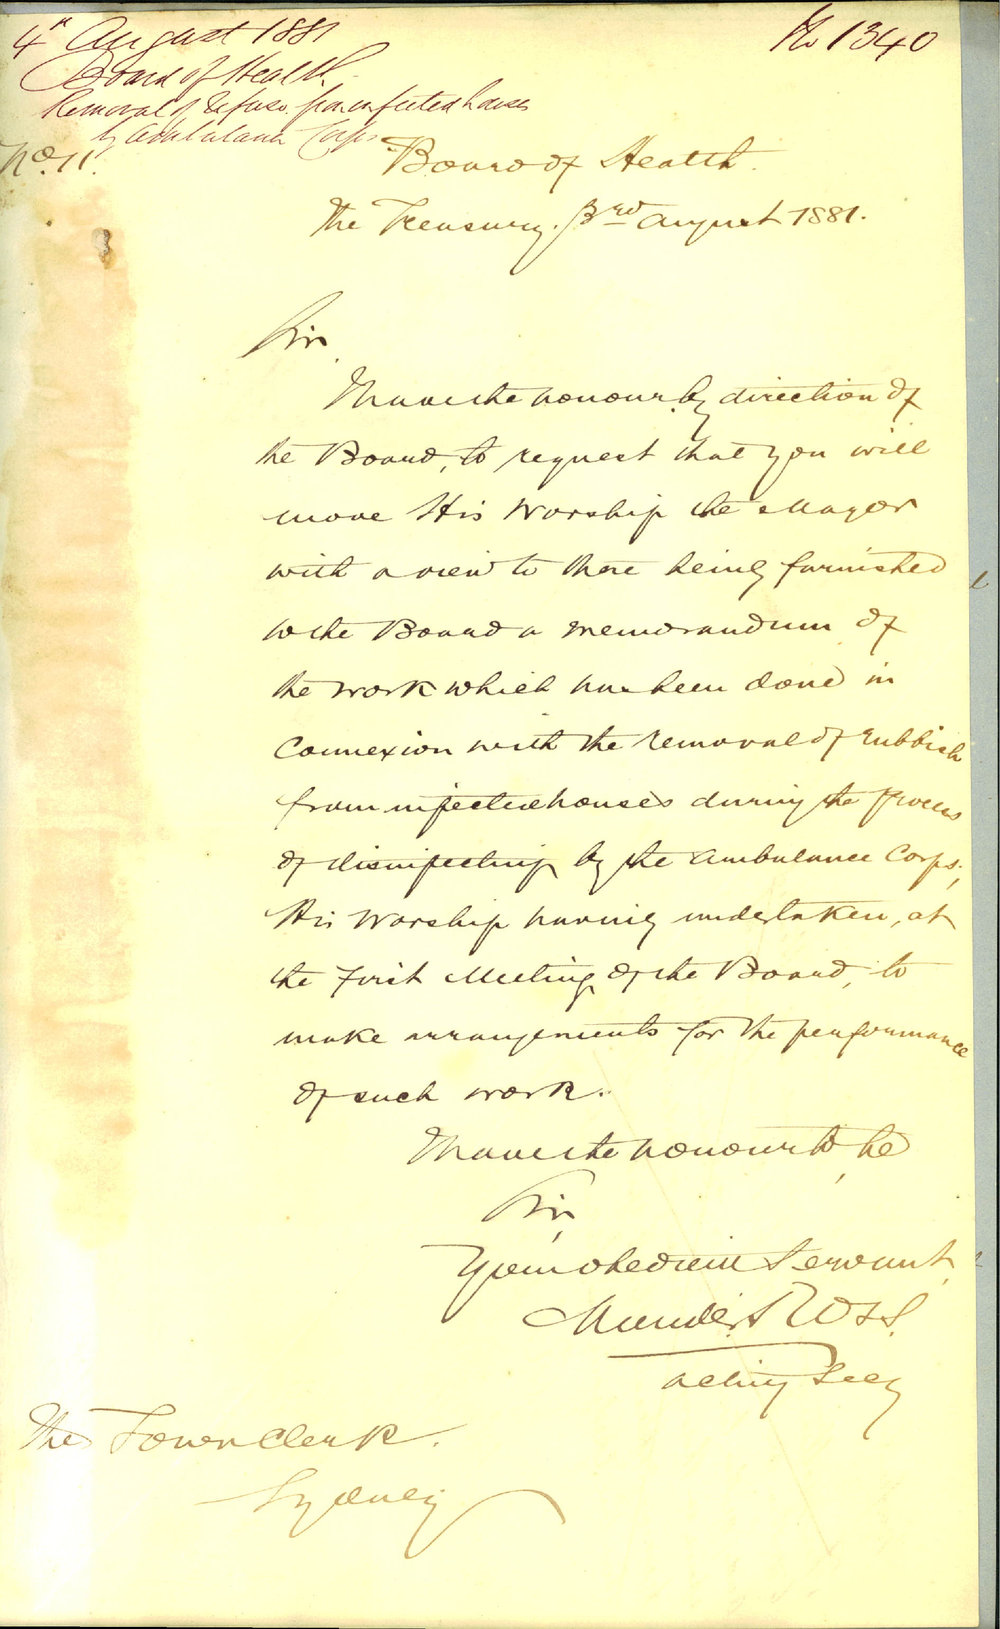 4th August 1881
No 1340
Board of Health
Removal of Refuse from infected houses
by Ambulance Corps
No. 11.
Board of Health.
The Treasury. 3rd August 1881.
Sir
I have the honour, by direction of
the Board, to request that you will
move His Worship the Mayor
with a view to there being furnished
to the Board a memorandum of
the work which has been done in
connexion with the removal of rubbish
from infected houses during the process
of disinfecting by the Ambulance Corps,
His Worship having undertaken, at
the First Meeting of the Board, to
make arrangements for the performance
of such work.
I have the honour to be
Sir,
Your obedient Servant,
Acting Secy
The Town Clerk.
Sydney